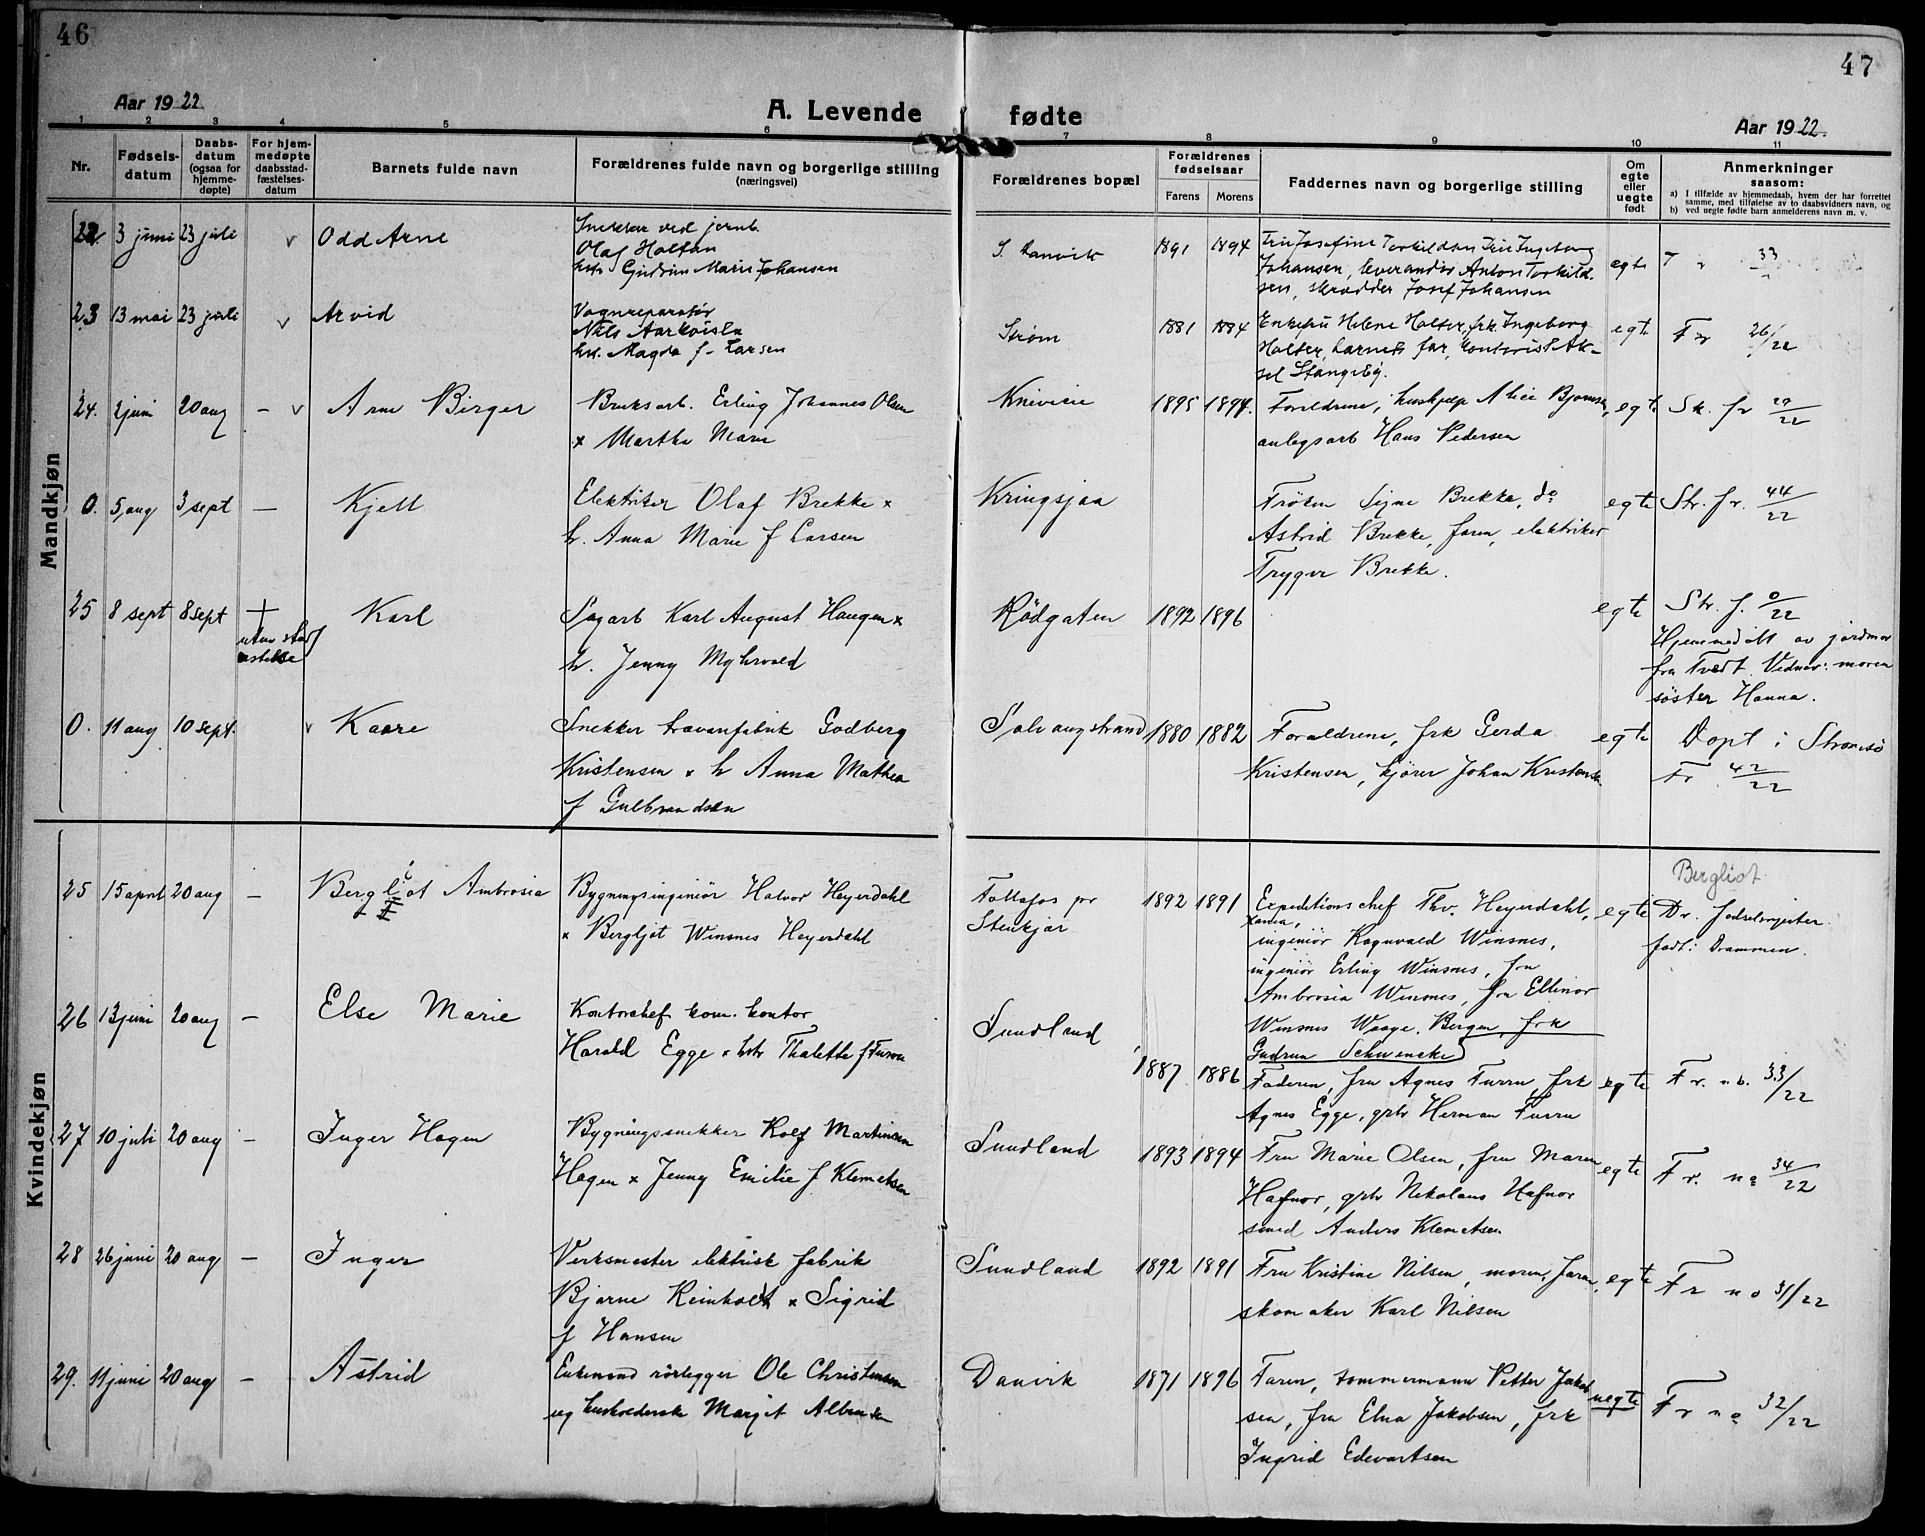 46
47
Aar 1922.
A. Levende fødte
Aar 1922.
1 2 3 4 5 6 7 8 9 10 11
Nr.
Fødsels-
datum
Daabs-
datum
(ogsaa for
hjemme-
døpte)
For hjem-
medøpte
daabsstad-
fæstelses-
datum
Barnets fulde navn
Forældrenes fulde navn og borgerlige stilling
(næringsvei)
Forældrenes bopæl
Forældrenes
fødselsaar
Farens Morens
Faddernes navn og borgerlige stilling
Om
egte
eller
uegte
født
Anmerkninger
saasom:
a) I tilfælde av hjemmedaab, hvem der har forrettet
samme, med tilføielse av to daabsvidners navn, og
b) ved uegte fødte barn anmelderens navn m. v.
Mandkjøn
22. 3 juni 23 juli v Odd Arne
Snekker ved jernb.
Olaf Holtan
Gudrun Marie Johansen
S. Danvik 1891 1894
Fru Josefine Torkildsen Fru Ingeborg
Johansen, Anton Torkild-
sen, skrædder Josef Johansen
egte 33
23 13 mai 23 juli v Arvid
Vognreparatør
Nils
Magda f. Larsen
Strøm 1881 1884
Enkefru Helene Holter, frk Ingeborg
Holter, barnets far, kontorist Ak-
sel
egte Fr 26/22
24. 2 juni 20 aug – v Arne Birger
Bruksarb. Erling Johannes Olsen
x Martha Marie
1895 1894.
Forældrene, Alice
anlegsarb Hans Pedersen
egte Sk. fr 29/22
0. 5 aug 3 sept – Kjell
Elektriker Olaf Brekke x
h. Anna Marie f Larsen
Kringsjaa
Frøken Signe Brekke, do
Astrid Brekke, faren, elektriker
Trygve Brekke.
egte Str. fr. 44/22
25 8 sept 8 sept + Karl
uten stadf
æstelse
Sagarb Karl August Haugen x
h. Jenny Myhrvold
Rödgaten 1892 1896
egte Str. f. 0/22
Hjemmedöbt av jordmor
fru Tvedt. Vidner: moren
söster Hanna.
0. 11 aug 10 sept. v Kaare
Snekker travarefabrik Godberg
Kristensen x h Anna Mathea
f Gulbrandsen
Solvangstrand 1880 1882
Forældrene, frk Gerda
Kristensen, kjører Johan Kristensen
egte Döpt i Strømsö
Fr 42/22
Kvindekjøn
25 15 april 20 aug – Bergliot Ambrosia
Bygningsingeniör Halvor Heyerdahl
x Bergljot Winsnes Heyerdahl
Follafos pr
Stenkjær
1892 1891
Expeditionschef Thv. Heyerdahl,
ingeniör Ragnvald Winsnes,
ingeniör Erling Winsnes, fru
Ambrosia Winsnes, fru Ellinor
Winsnes Waage, Bergen, frk
Gudrun Schwencke
egte
Bergliot
Dr. fødselsregister
født i Drammen.
26 13 juni 20 aug – Else Marie
Kontorchef kom. kontor
Harald Egge x h Thalette f Furru
Sundland
1887 1886
Faderen, fru Agnes Furru, frk
Agnes Egge, grb Herman Furru
egte Fr. n. b. 33/22
27 10 juli 20 aug – Inger Hagen
Bygningssnekker Rolf Martinsen
Hagen x Jenny Emilie f. Klemetsen
Sundland 1893 1894
Fru Marie Olsen, fru Maren
Hafnor, grb Nikolaus Hafnor
smed Anders Klemetsen
egte Fr. no 34/22
28 26 juni 20 aug – Inger
Verksmester elektrisk fabrik
Bjarne Reinholdt x Sigrid
f Hansen
Sundland 1892 1891
Fru Kristine Nilsen, moren, faren,
skomaker Karl Nilsen
egte Fr no 31/22
29. 11 juni 20 aug – Astrid
Enkemand rörlegger Ole Christensen
og husholderske Margit
Danvik 1871 1896
Faren, tømmermann Petter Jakob
sen, fru Elna Jakobsen, frk
Ingrid Edvartsen
uegte Fr no 32/22